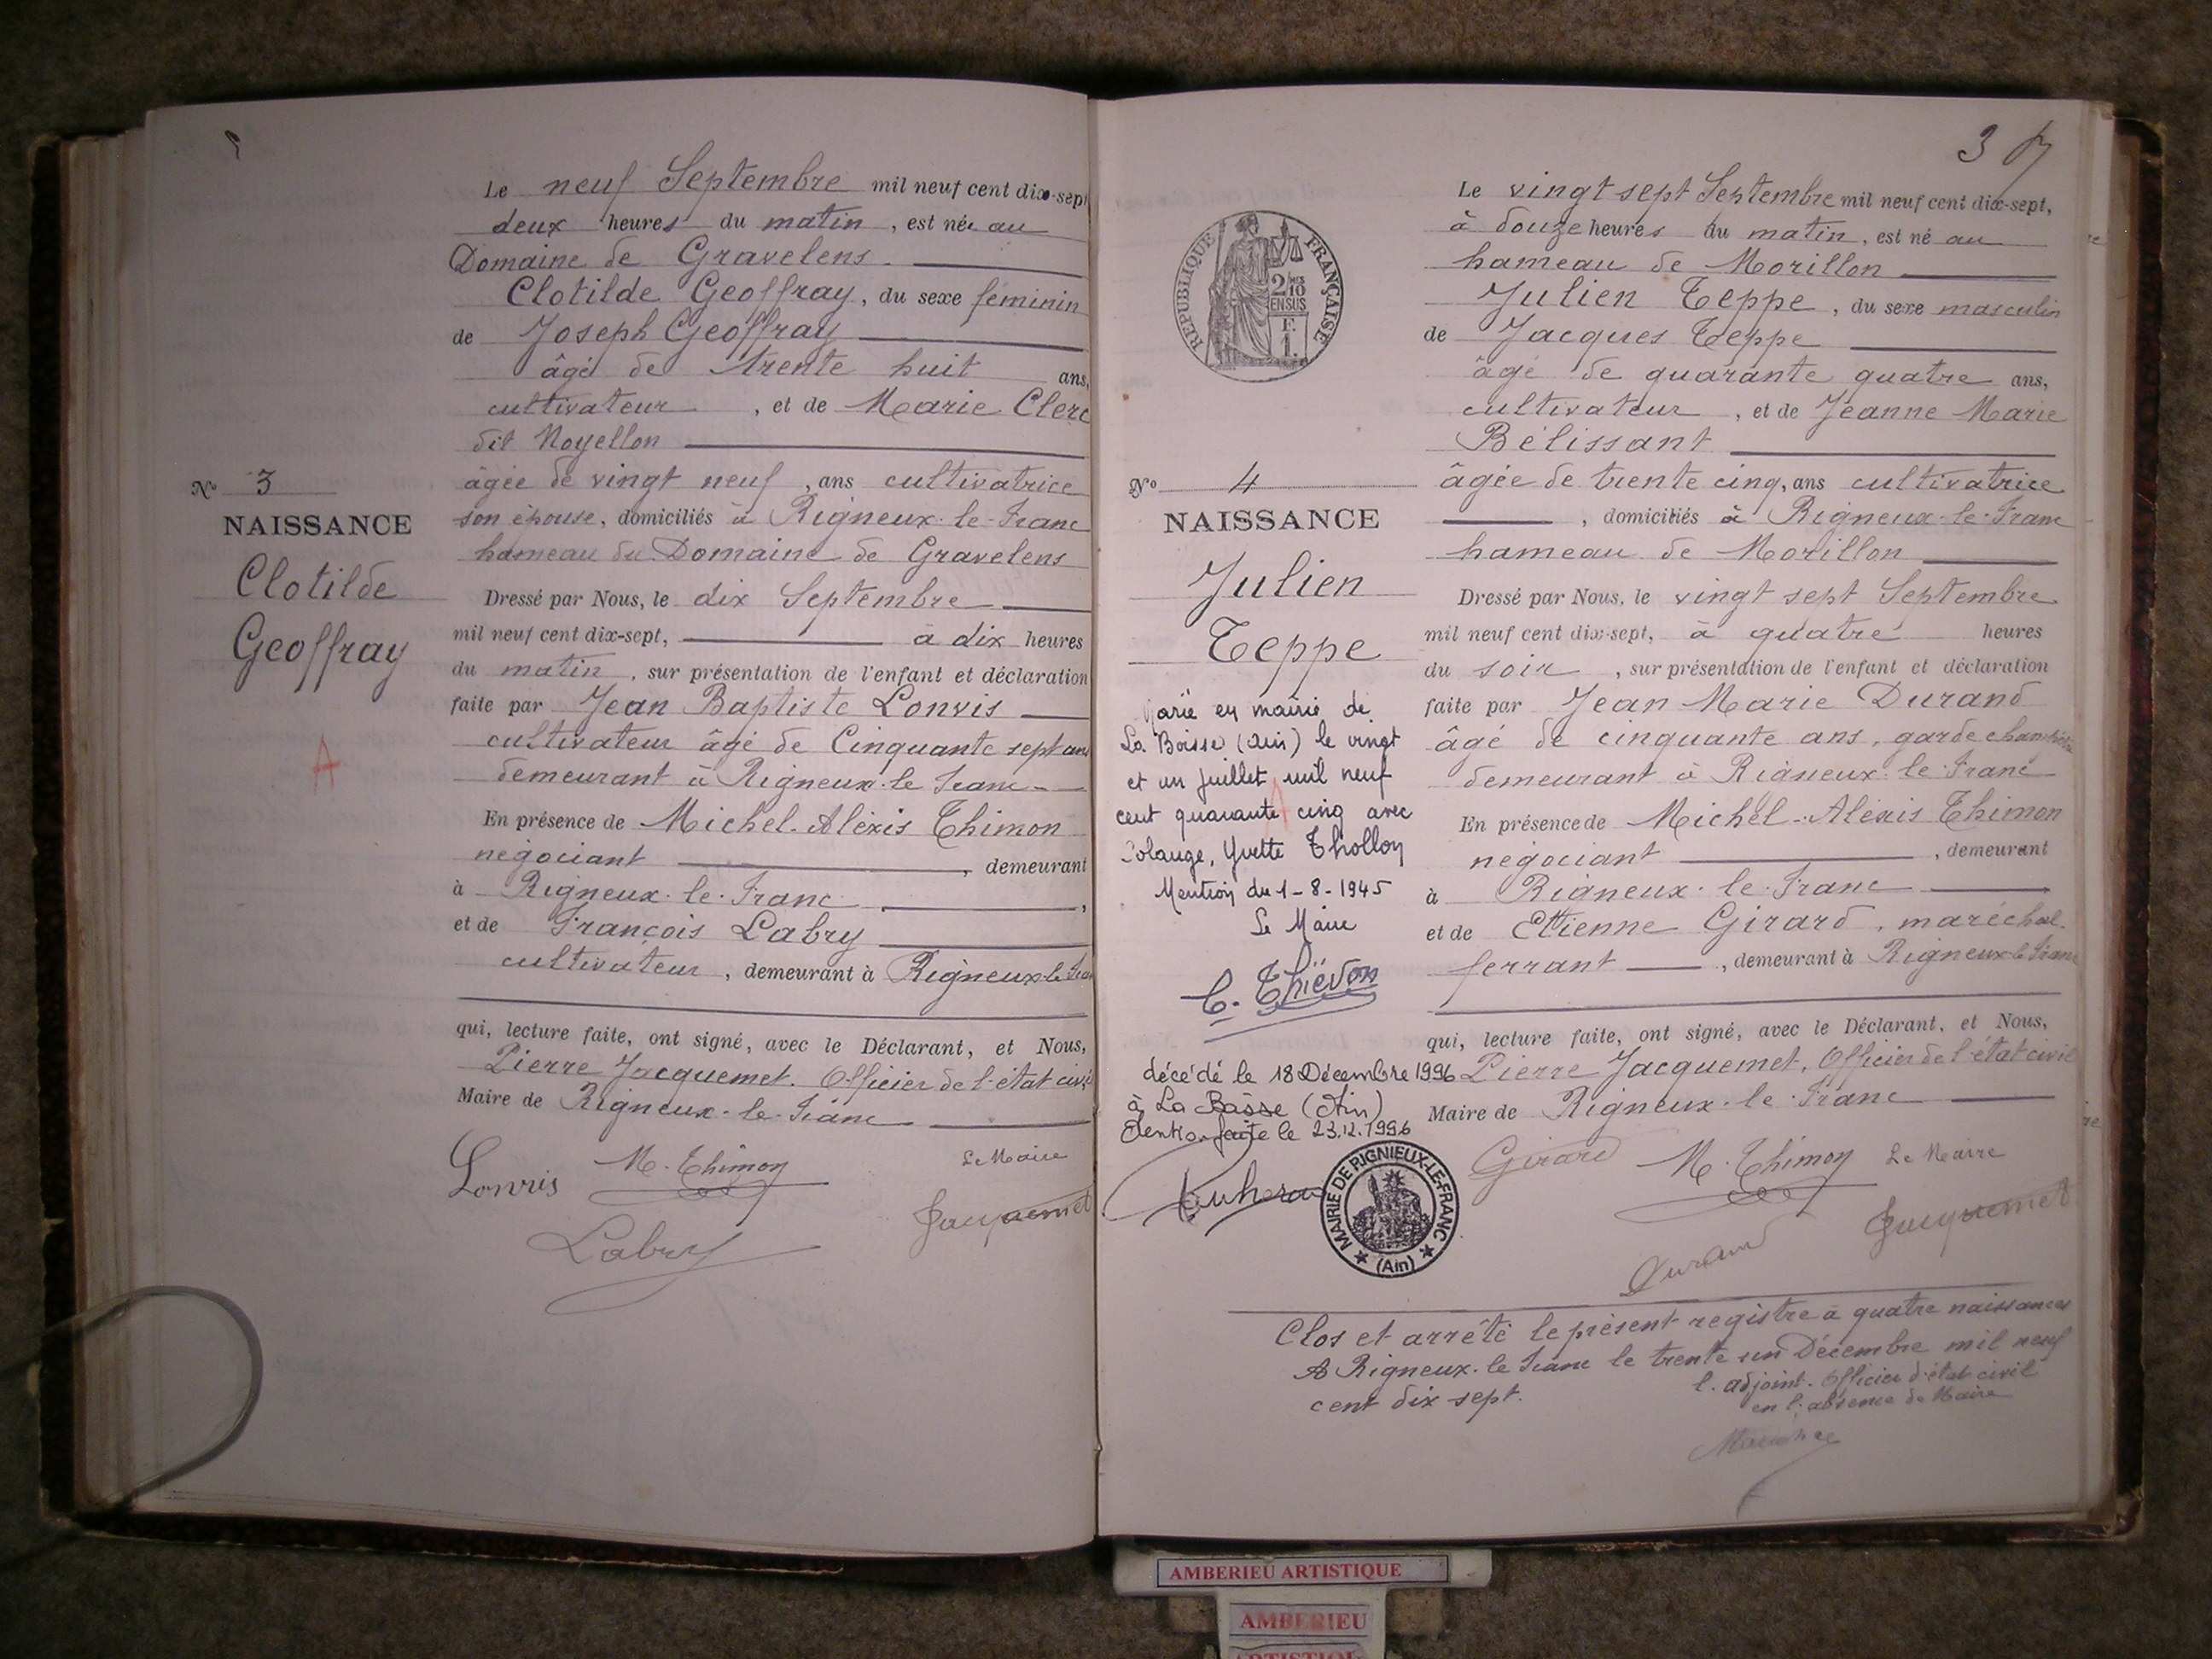 Le neuf Septembre mil neuf cent dix-sept
deux heures du matin, est née au
Domaine de Gravelens
Clotilde Geoffray, du sexe féminin
de Joseph Geoffray
âgé de trente huit ans,
cultivateur, et de Marie Clerc
dit Noyellon
âgée de vingt neuf, ans cultivatrice
son épouse, domiciliés à Rigneux-le-Franc
hameau du Domaine de Gravelens
Dressé par Nous, le dix Septembre
mil neuf cent dix-sept, à dix heures
du matin, sur présentation de l'enfant et déclaration
faite par Jean Baptiste Lonvis
cultivateur âgé de Cinquante sept ans
demeurant à Rigneux-le-Franc
En présence de Michel-Aléxis Thimon
négociant, demeurant
à Rigneux-le-Franc,
et de François Labry
cultivateur, demeurant à Rigneux-le-Franc
qui, lecture faite, ont signé, avec le Déclarant, et Nous,
Pierre Jacquemet. Officier de l'état civil
Maire de Rigneux-le-Franc
Le Maire
Lonvis M. Thimon
Jacquemet
Labry
No 3
NAISSANCE
Clotilde
Geoffray
A
3
RÉPUBLIQUE FRANÇAISE
2/10
EN SUS
F.
1.
No 4
NAISSANCE
Julien
Teppe
Marié en mairie de
La Boisse (Ain) le vingt
et un juillet mil neuf
cent quarante cinq avec
Solange, Yvette Thollon
Mention du 1-8-1945
Le Maire
C. Thiévon
décédé le 18 Décembre 1996
à La Boisse (Ain)
Mention faite le 23.12.1996
MAIRIE DE RIGNIEUX-LE-FRANC
(Ain)
Le vingt sept Septembre mil neuf cent dix-sept,
à douze heures du matin, est né au
hameau de Morillon
Julien Teppe, du sexe masculin
de Jacques Teppe
âgé de quarante quatre ans,
cultivateur, et de Jeanne Marie
Bélissant
âgée de trente cinq, ans cultivatrice
, domiciliés à Rigneux-le-Franc
hameau de Morillon
Dressé par Nous, le vingt sept Septembre
mil neuf cent dix-sept, à quatre heures
du soir, sur présentation de l'enfant et déclaration
faite par Jean Marie Durand
âgé de cinquante ans, garde champêtre
demeurant à Rigneux-le-Franc
En présence de Michel-Aléxis Thimon
négociant, demeurant
à Rigneux-le-Franc,
et de Etienne Girard, maréchal-
ferrant, demeurant à Rigneux-le-Franc
qui, lecture faite, ont signé, avec le Déclarant, et Nous,
Pierre Jacquemet, Officier de l'état civil
Maire de Rigneux-le-Franc
Girard M. Thimon Le Maire
Durand Jacquemet
Clos et arrêté le présent registre à quatre naissances
A Rigneux-le-Franc le trente un Décembre mil neuf
cent dix sept.
l'adjoint. Officier d'état civil
en l'absence du Maire
AMBERIEU ARTISTIQUE
AMBERIEU
ARTISTIQUE